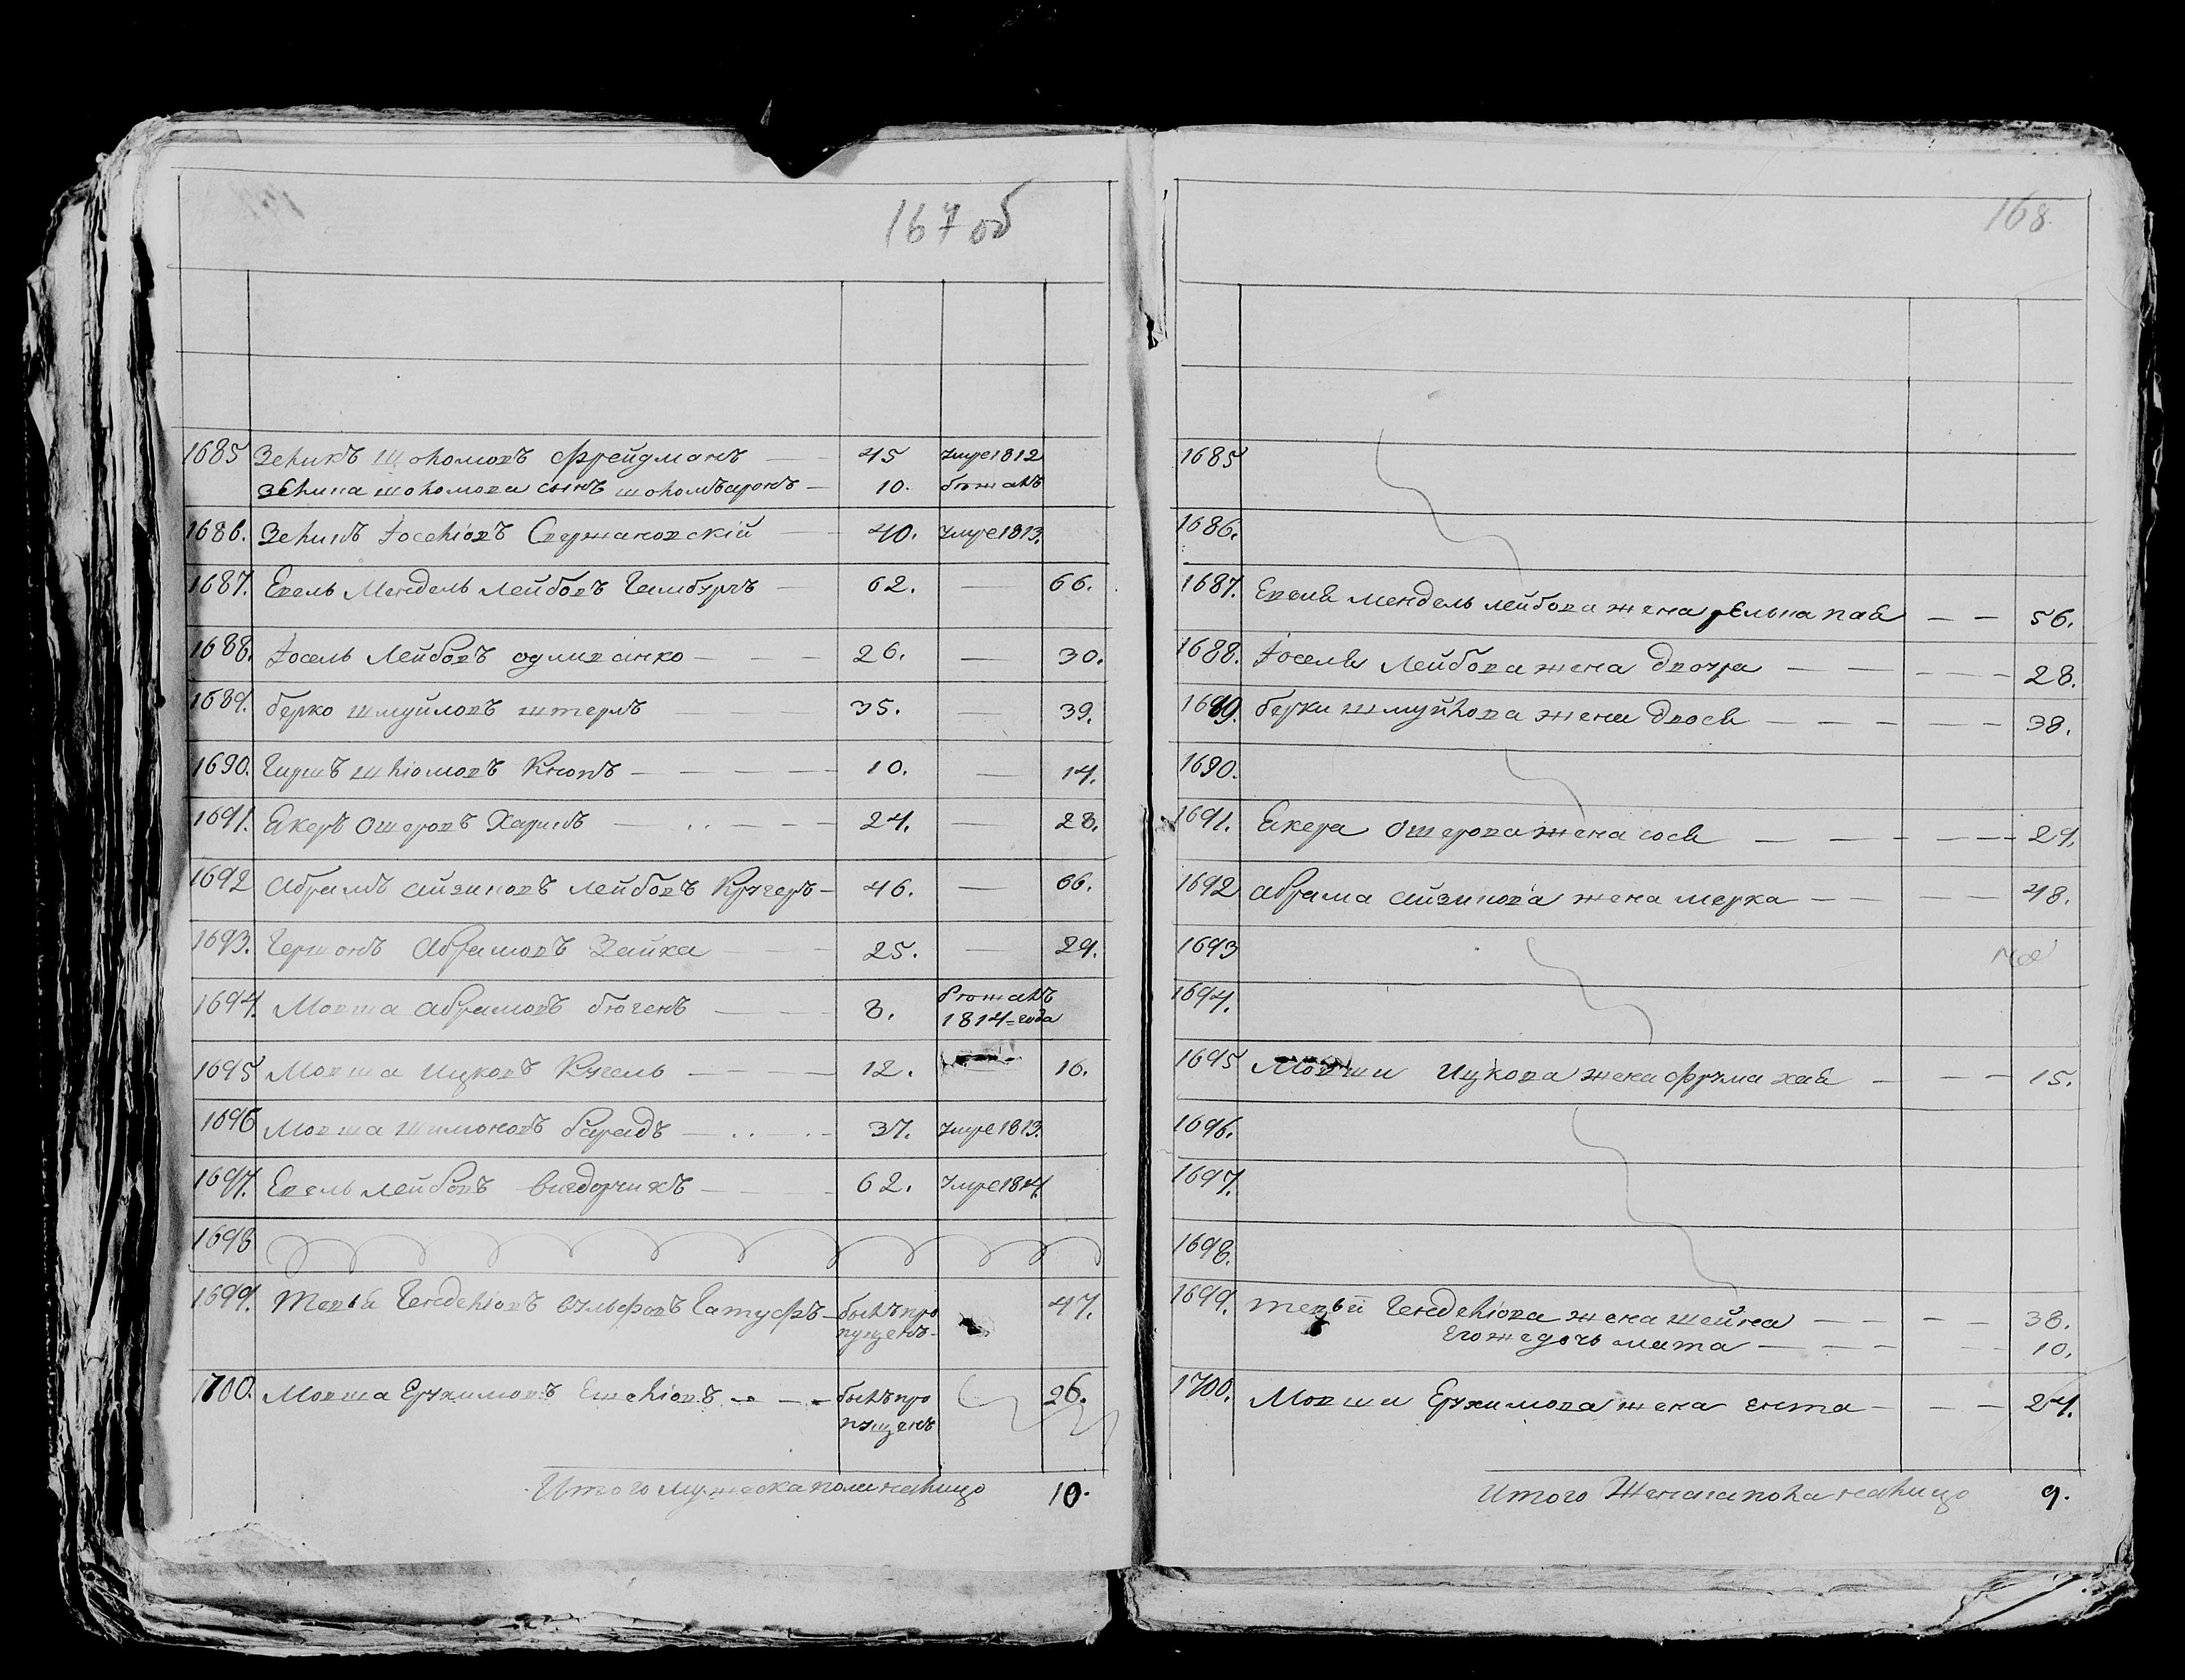 167 об
1685 Зеликъ Шоломовъ Фрейдманъ — 45 умре 1812
Зелика шоломова сынъ шоломъаронъ — 10. бѣжалъ
1686. Зеликъ Іоселіовъ Свержановскій — 40. умре 1813.
1687. Евель Мендель Лейбовъ Гимбургъ — 62. — 66.
1688. Іосель Лейбовъ — 26. — 30.
1689. берко шмуйловъ штернъ 35. — 39.
1690. Гиршъ шліомовъ Кнопъ — 10. — 14.
1691. Екеръ Ошеровъ Харикъ — 24. — 28.
1692 Абрамъ айзиковъ лейбовъ Кугеръ — 46. — 66.
1693. Гершонъ Абрамовъ Зайка — 25. — 29.
1694. Мовша абрамовъ — 8. бѣжалъ
1814 года
1695 Мовша ицковъ Кугель — 12. 16.
1696 Мовша шимоновъ барадъ — 37. умре 1813.
1697. Евель лейбовъ вигдорчикъ — 62. умре 1814.
1698
1699. Тевья Генделіовъ вульфовъ Гатуфъ — былъ про 47.
пущенъ
1700. Мовша Ерухимовъ Ешеліовъ — былъ про 26.
пущенъ
Итого мужеска пола налицо 10.
168
1685
1686.
1687. Евеля мендель лейбова жена 56.
1688. Іоселя Лейбова жена двоера — 28.
1689. берки шмуйлова жена двося — 38.
1690.
1691. Екера Ошерова жена сося — 29.
1692 абрама айзикова жена мерка — 48.
1693
1694.
1695 Мовши Ицкова жена фрума хая — 15.
1696.
1697.
1698.
1699. тевьи Генделіова жена шейна — 38.
его же дочь мата — 10.
1700. Мовши Ерухимова жена ента — 24.
Итого Женска пола налицо 9.